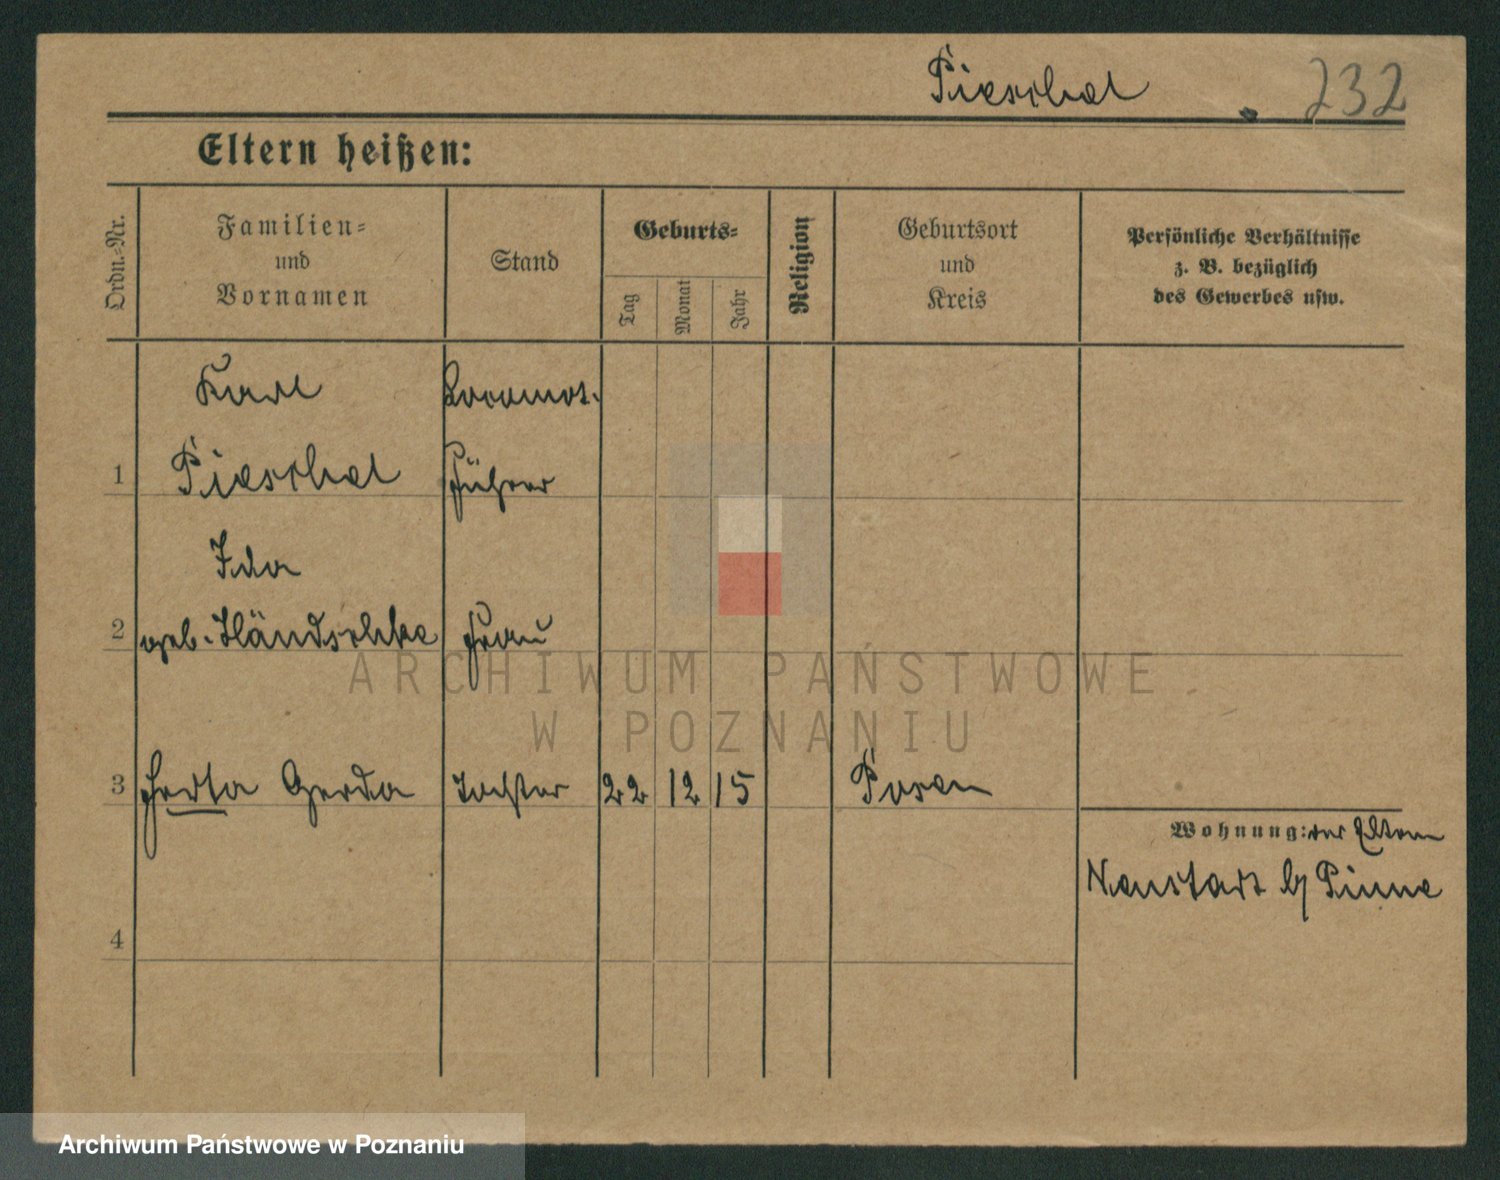 Pieschel 232
Eltern heißen:
Ordn.-Nr.
Familien-
und
Vornamen
Stand
Geburts-
Tag
Monat
Jahr
Religion
Geburtsort
und
Kreis
Persönliche Verhältnisse
z. B. bezüglich
des Gewerbes usw.
Karl Locomot.
1 Pieschel Führer
Ida
2 geb. Händschke Frau
3 Herta Gerda Tochter 22 12 15 Posen
Wohnung: der Eltern
Neustadt b/ Pinne
4
ARCHIWUM PAŃSTWOWE
W POZNANIU
Archiwum Państwowe w Poznaniu